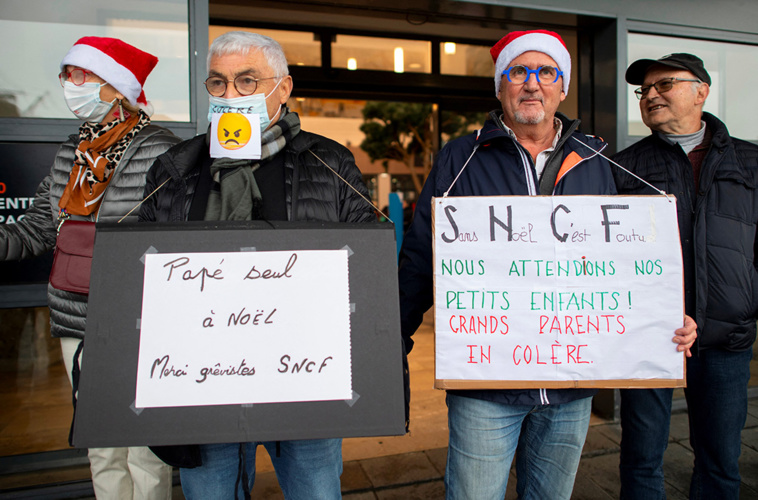 Papé seul
à NOËL
Merci grêvistes SNCF
Sans Noël C'est Foutu !
NOUS ATTENDiONS NOS
PETITS ENFANTS !
GRANDS PARENTS
EN COLÈRE.